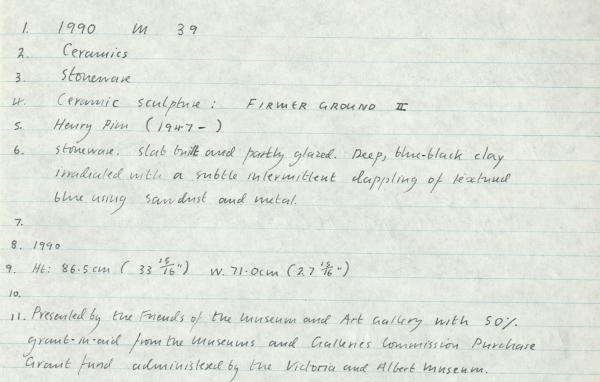 1. 1990 M 39
2. Ceramics
3. Stoneware
4. Ceramic sculpture: FIRMER GROUND II
5. Henry Pim (1947- )
6. Stoneware. Slab built and partly glazed. Deep, blue-black clay
irradiated with a subtle intermittent dappling of textured
blue using sawdust and metal.
7.
8. 1990
9. Ht: 86.5cm (33 15/16") W. 71.0cm (27 15/16")
10.
11. Presented by the Friends of the Museum and Art Gallery with 50%
grant-in-aid from the Museums and Galleries Commission Purchase
Grant fund administered by the Victoria and Albert Museum.